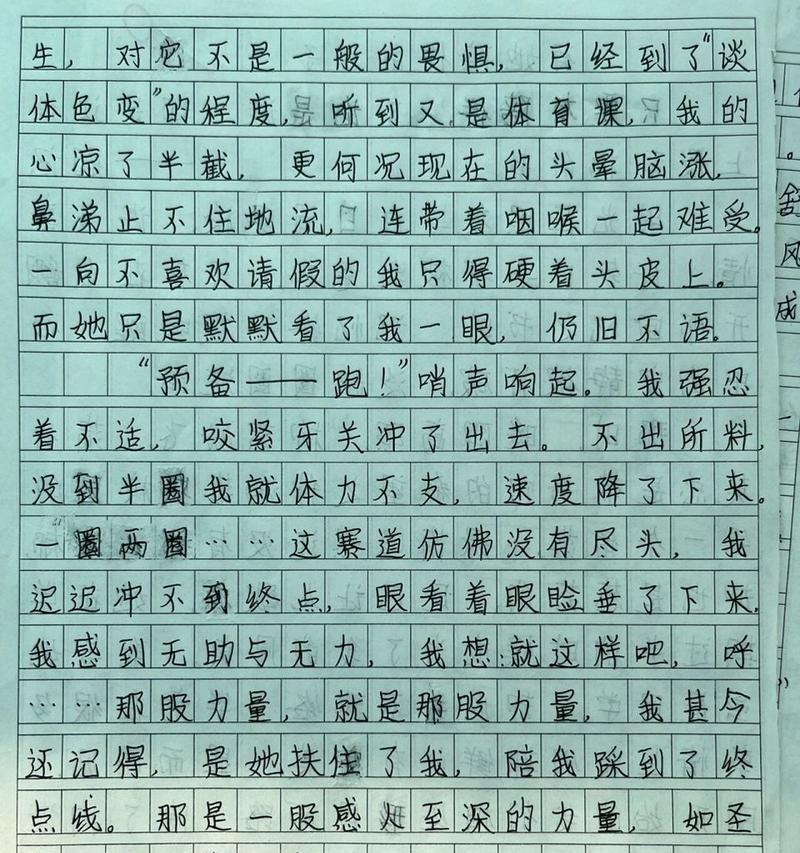 生，对它不是一般的畏惧，已经到了“谈
体色变”的程度，听到又是体育课，我的
心凉了半截，更何况现在的头晕脑涨，
鼻涕止不住地流，连带着咽喉一起难受。
一向不喜欢请假的我只得硬着头皮上。
而她只是默默看了我一眼，仍旧不语。
“预备——跑！”哨声响起。我强忍
着不适，咬紧牙关冲了出去。不出所料，
没到半圈我就体力不支，速度降了下来。
一圈两圈……这赛道仿佛没有尽头，我
迟迟冲不到终点，眼看着眼睑垂了下来，
我感到无助与无力，我想：就这样吧，呼
……那股力量，就是那股力量，我甚今
还记得，是她扶住了我，陪我踩到了终
点线。那是一股感至深的力量，如圣
舍
风
成